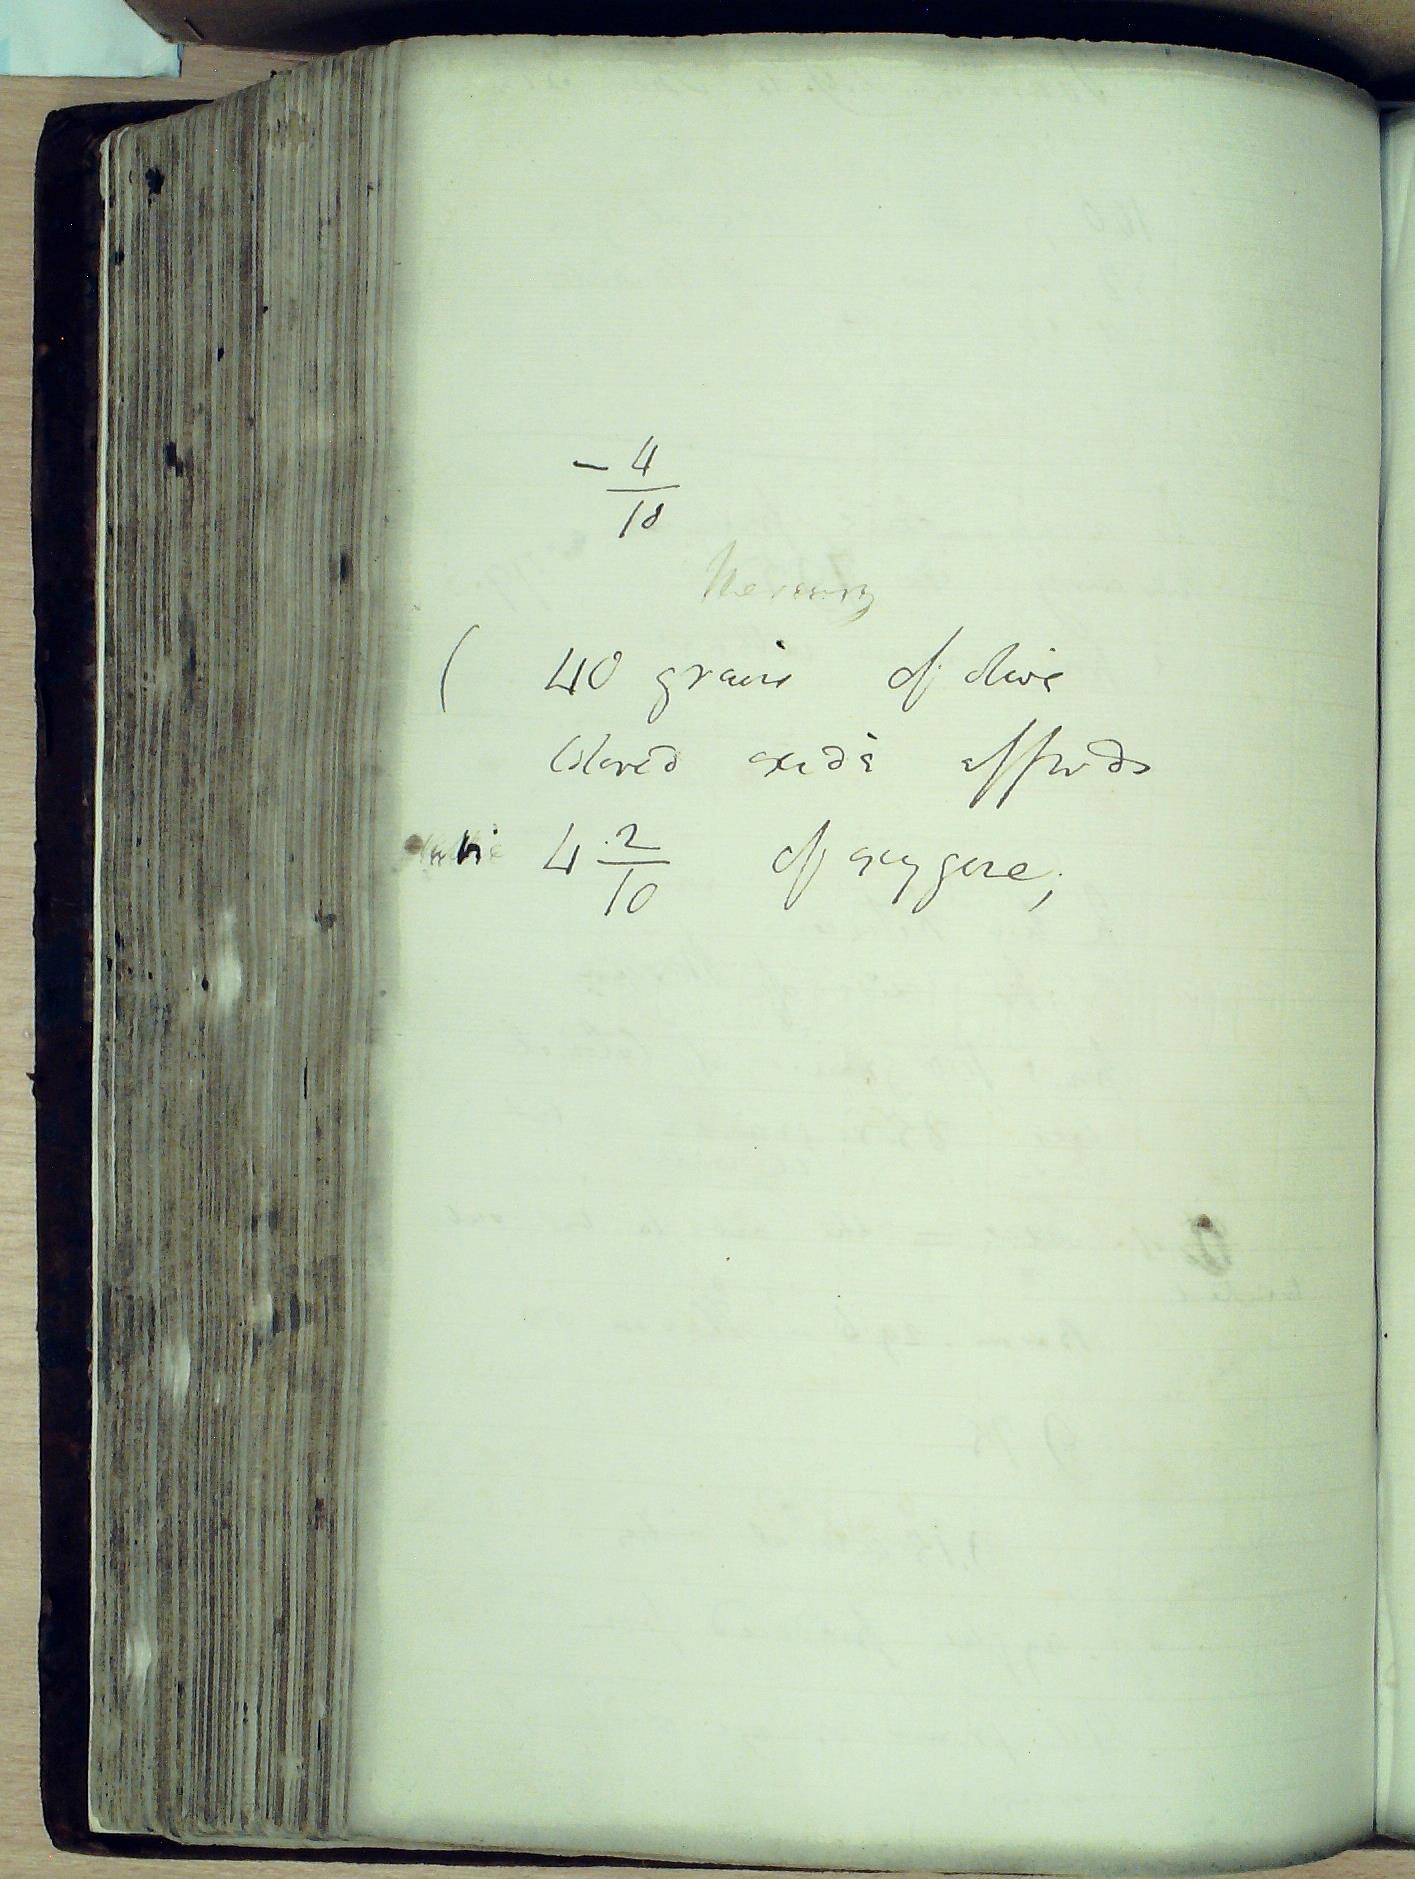 - 4/10
Mercury
( 40 grains of olive
colored oxide affords
4 2/10 of oxygene;